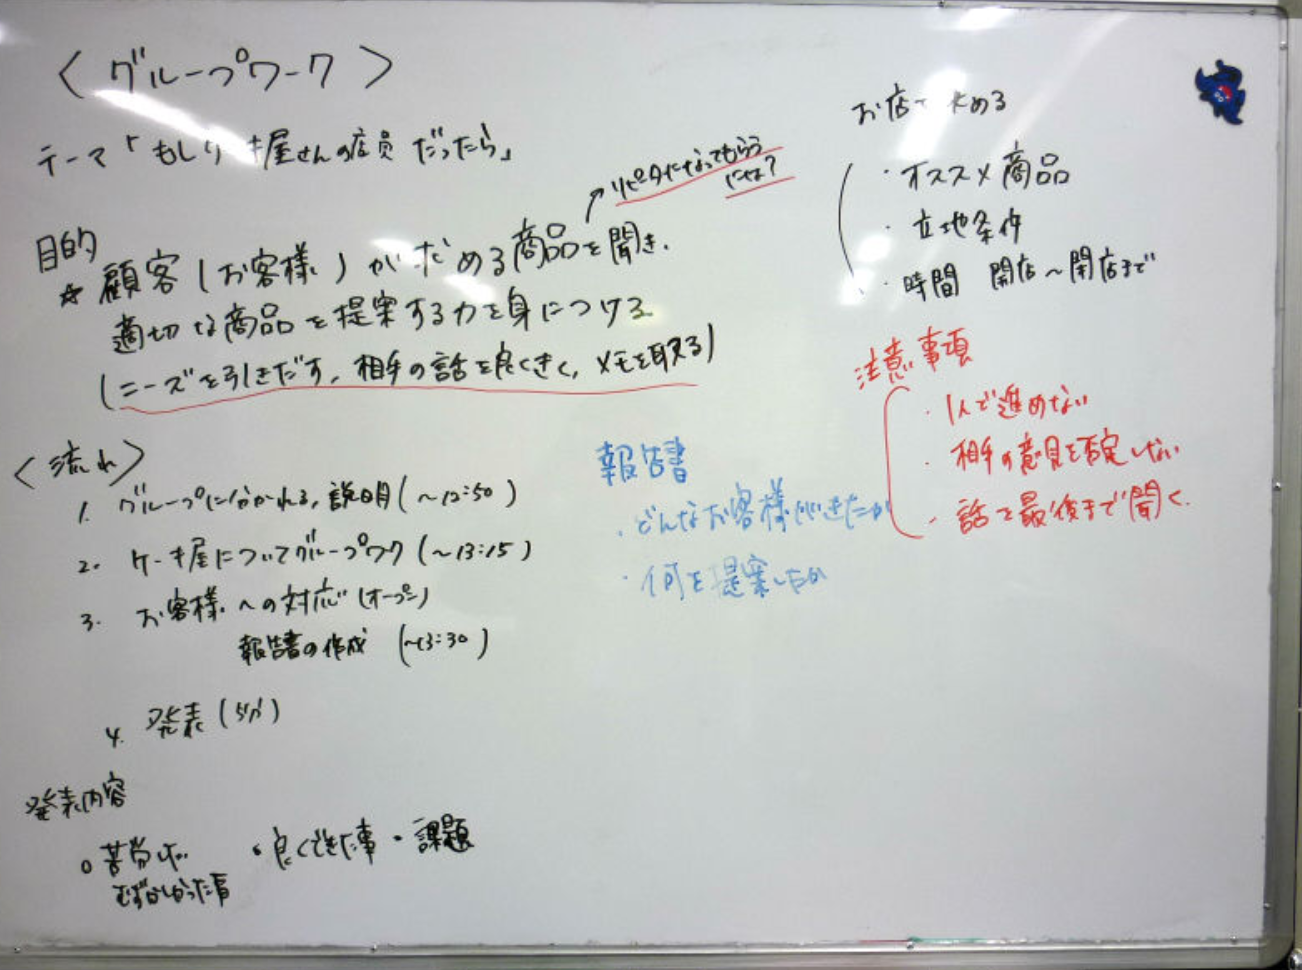 〈グループワーク〉
テーマ「もしケーキ屋さんの店員だったら」
リピータになってもらう
には?
目的
☆ 顧客(お客様)が求める商品を聞き、
適切な商品を提案する力を身につける
(ニーズを引きだす, 相手の話を良くきく, メモを取る)
〈流れ〉
1. グループに分かれる, 説明(〜12:50)
2. ケーキ屋についてグループワーク(〜13:15)
3. お客様への対応(オープン)
報告書の作成 (〜13:30)
4. 発表(5分)
発表内容
○ 苦労した
むずかしかった事
・良くできた事 ・課題
報告書
・どんなお客様がきたか
・何を提案したか
お店で求める
・オススメ商品
・立地条件
・時間 開店〜閉店まで
注意事項
・1人で進めない
・相手の意見を否定しない
・話を最後まで聞く.